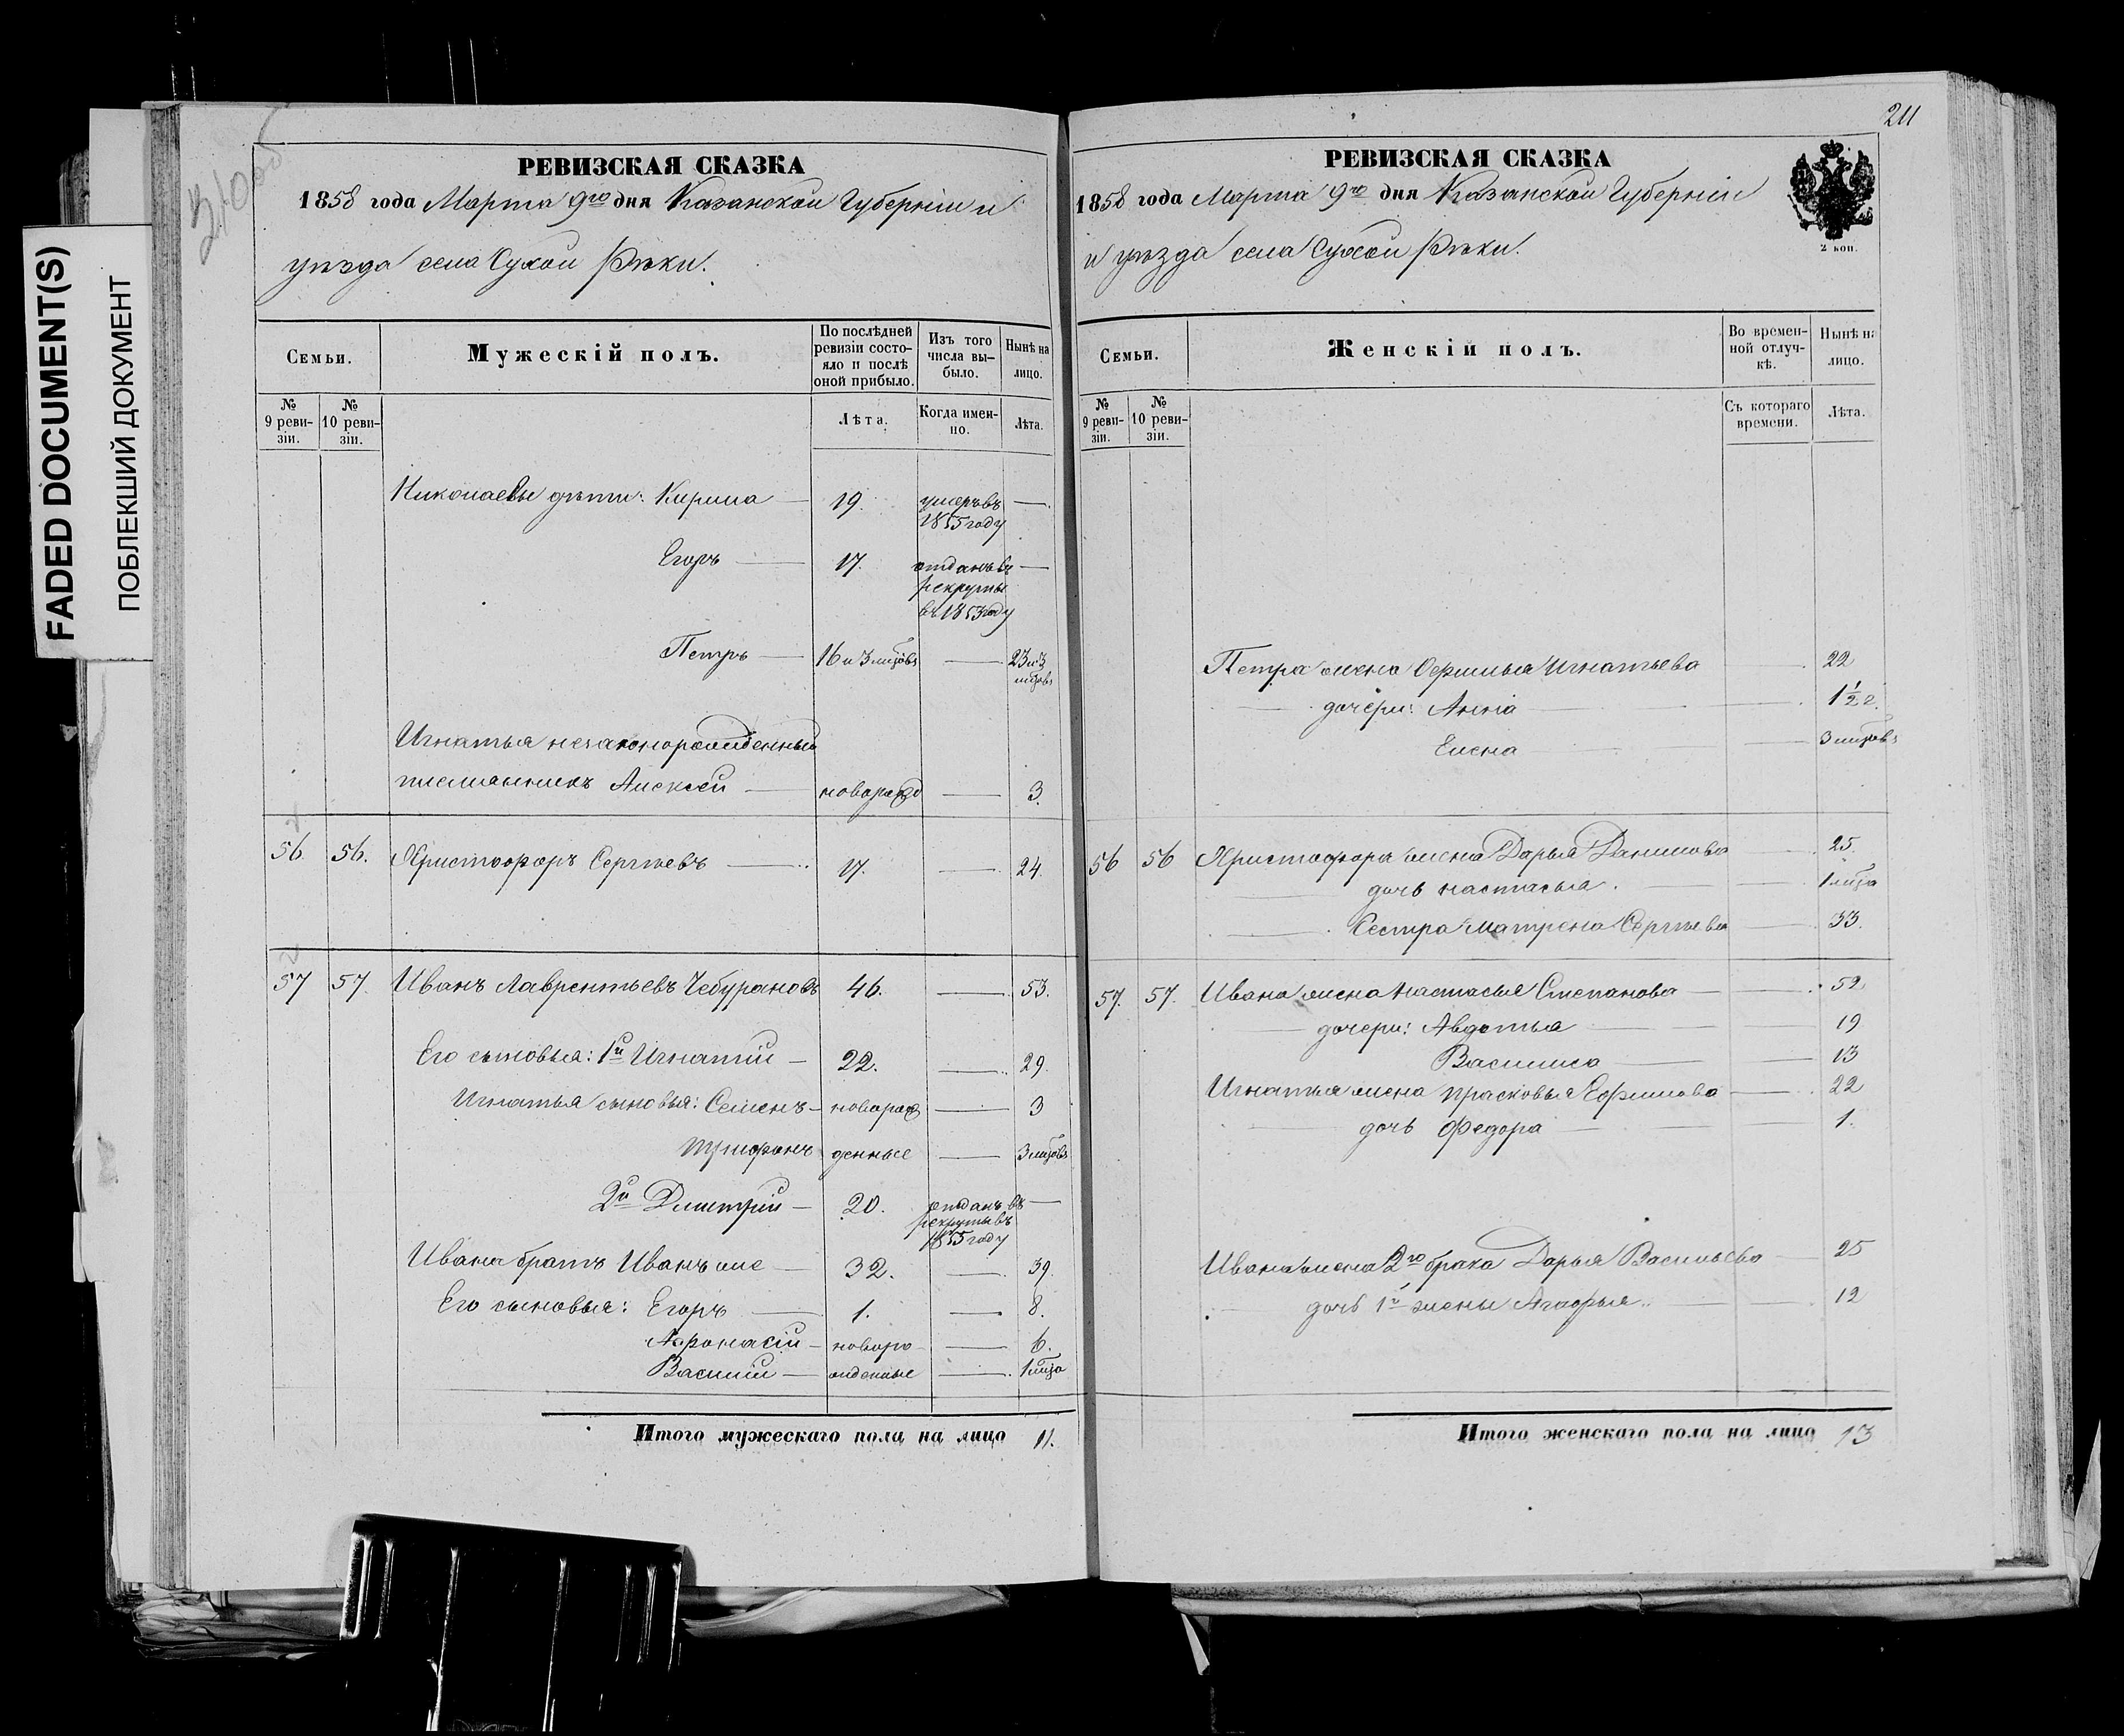 FADED DOCUMENT(S)
ПОБЛЕКШИЙ ДОКУМЕНТ
РЕВИЗСКАЯ СКАЗКА
1858 года Марта 9го дня Казанской Губерніи и
уѣзда села Сухой Рѣки.
Семьи.
Мужескій полъ.
По послѣдней
ревизіи состо-
яло и послѣ
оной прибыло.
Изъ того
числа вы-
было.
Нынѣ на
лицо.
№
9 реви-
зіи.
№
10 реви-
зіи.
Лѣта.
Когда имен-
но.
Лѣта.
Николаевы дѣти: Кирила — 19. умеръ въ —
1855 году
Егоръ — 17. отданъ въ —
рекруты
въ 1853 году
Петръ — 16 и 3 мѣсцовъ — 23 и 3
мѣсцовъ
Игнатья незаконорожденный
племянникъ Алексѣй — новорожд — 3.
56. 56. Христофоръ Сергѣевъ — 17. — 24.
57 57. Иванъ Лаврентьевъ Чебурановъ 46. — 53.
Его сыновья: 1й Игнатій — 22. — 29.
Игнатья сыновья: Семенъ — новорож — 3
Трифонъ денные — 3 мѣсцовъ
2й Дмитрій — 20. отданъ въ —
рекруты въ
1855 году
Ивана братъ Иванъ же — 32. — 39.
Его сыновья: Егоръ — 1. — 8.
Афонасій — новоро — 6.
Василій — жденные — 1 мѣсца
Итого мужескаго пола на лицо 11.
211
РЕВИЗСКАЯ СКАЗКА
1858 года Марта 9го дня Казанской Губерніи
и уѣзда села Сухой Рѣки.
2 коп.
Семьи.
Женскій полъ.
Во времен-
ной отлуч-
кѣ.
Нынѣ на
лицо.
№
9 реви-
зіи.
№
10 реви-
зіи.
Съ котораго
времени.
Лѣта.
Петра жена Игнатьева — 22
— дочери: Анна — 1½ г.
Елена — 3 мѣсцовъ
56 56 Христофора жена Дарья Данилова — 25.
— дочь Настасья. — 1 мѣсца
— Сестра Матрена Сергѣева — 33.
57. 57. Ивана жена Настасья Степанова — 52
— дочери: Авдотья — 19
Василиса — 13
Игнатья жена Прасковья Ефимова — 22
— дочь Федора — 1.
Ивана жена 2го брака Дарья Васильева — 25
дочь 1й жены Агафья — 12
Итого женскаго пола на лицо 13